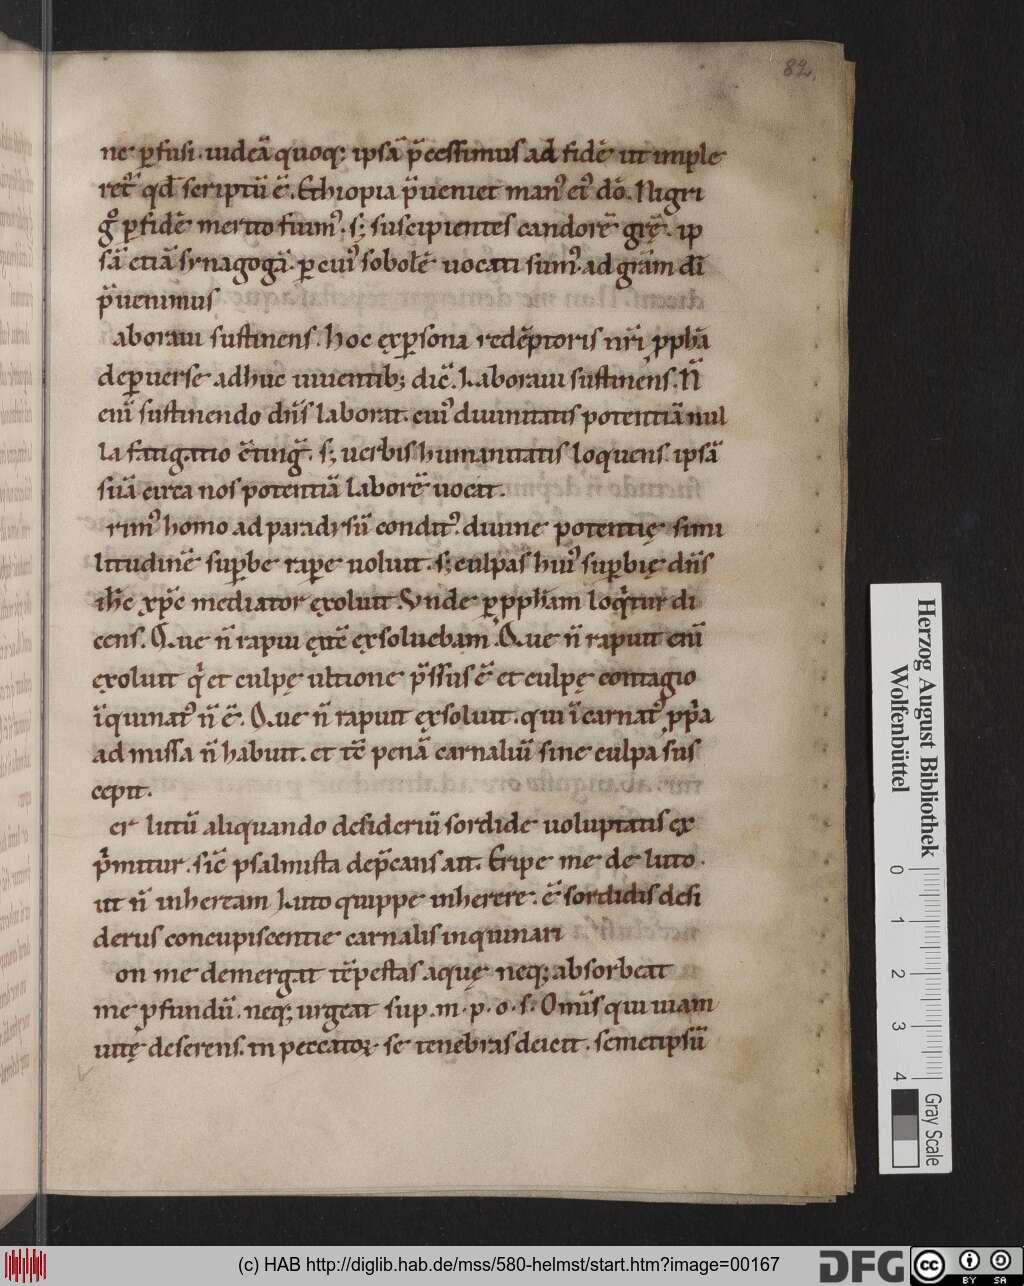 82.
ne ꝑfusi. iudeā quoq; ipsā p̄cessimus ad fidē ut imple
ret᷑ qđ scriptū ē. Ethiopia p̄ueniet man᷒ ei᷒ dō. Nigri
gͦ ꝑfidē merito fuim᷒. s; suscipientes candorē grę̄. ip
sā etiā synagogā. ꝑ cui᷒ sobolē uocati sum᷒. ad grām dī
p̄uenimus
aboraui sustinens. hoc exꝑsona redēptoris nr̄i ꝓph̄a
de ꝑuerse adhuc uiuentib; dic̄. Laboraui sustinens. N̄
enī sustinendo dn̄s laborat. cui᷒ diuinitatis potentiā nul
la fatigatio c̄tinḡ. s; uerbis humanitatis loquens. ipsā
suā circa nos potentiā laborē uocat.
rim᷒ homo ad paradysū condit᷒. diuine potentię simi
litudinē suꝑbe raꝑe uoluit. s; culpas hui᷒ suꝑbię dn̄s
ih̄c xp̄c mediator exoluit. Vnde ꝑ ꝓph̄am loqͥtur di
cens. Que n̄ rapui extē exsoluebam. Que n̄ rapuit enī
exoluit qͥ et culpę ultione p̄ssus ē et culpę contagio
īquinat᷒ n̄ ē. Que n̄ rapuit exsoluit. qui īcarnat᷒ ꝓpͥa
admissa n̄ habuit. et tē penā carnaliū sine culpa sus
cepit.
er lutū aliquando desideriū sordide uoluptatis ex
pͥmitur. sic̄ psalmista dep̄cans ait. Eripe me de luto.
ut n̄ inheream. Luto quippe inherere. ē sordidis desi
deriis concupiscentie carnalis inquinari
on me demergat tēpestas aquę neq; absorbeat
me ꝓfundū. neq; urgeat sup. m. p. o. s. Om̄is qui uiam
uitę deserens. in peccatoꝝ se tenebras deicit. semetipsū
Herzog August Bibliothek
Wolfenbüttel
0 1 2 3 4
Gray Scale
(c) HAB http://diglib.hab.de/mss/580-helmst/start.htm?image=00167
DFG
cc BY SA